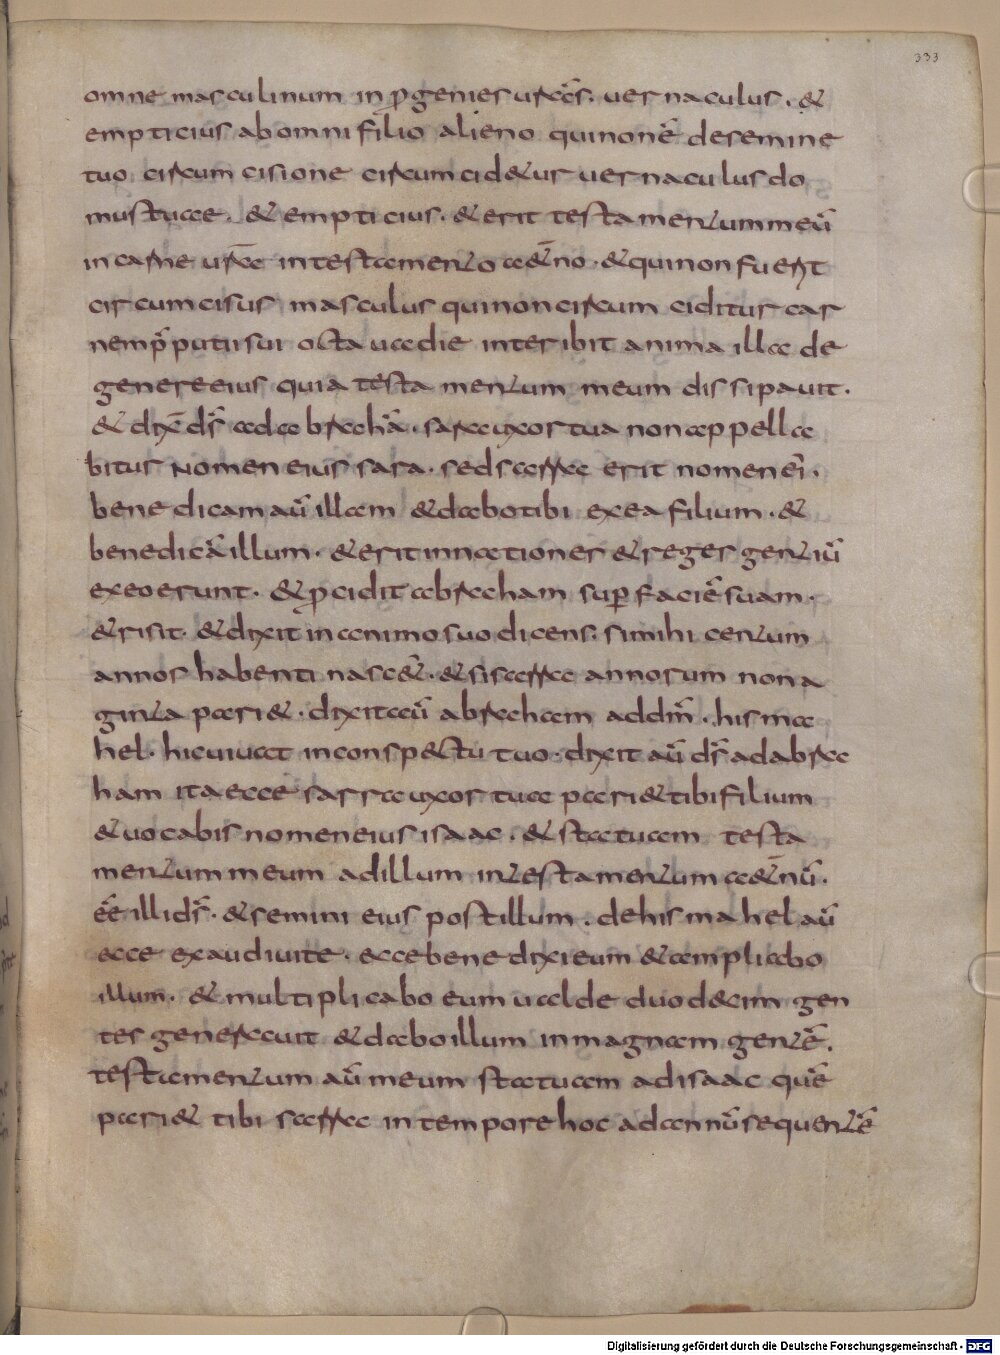 333
omne masculinum in ꝓgenies urãs. uernaculus. &
empticius abomni filio alieno quinonē desemine
tuo circumcisione circumcid&ur uernaculus do
mustuae. & empticius. & erit testamentummeū
incarne urā intestamento a&̄no. &quinonfuerit
circumcisus masculus quinoncircumciditur car
nemp̄putiisui octauadie interibit anima illa de
genereeius quia testamentum meum dissipauit.
& dix̄ ds̄ adabrahā. sarauxortua nonappella
bitur Nomeneius sara. sedsarra erit nomenei.
benedicamaūillam &dabotibi exea filium. &
benedicāillum. &eritinnationes &reges gentiū
exeoerunt. & ꝓcidit abraham suꝑfaciēsuam.
&risit. &dixit inanimosuo dicens. simihi centum
annos habenti nascet̄. &sisarra annorum nona
ginta pari&. dixitaū abraham addm̄. hisma
hel. hicuiuat inconspectu tuo. dixit aū ds̄ adabra
ham itaecce sarrauxor tua pari&tibifilium
&uocabisnomeneius isaac. & statuam testa
mentummeum adillum intestamentum a&̄nū.
eē illids̄. &semini eius postillum. dehismahel aū
ecce exaudiuite. eccebenedixieum &ampliabo
illum. & multiplicabo eum ualde duodecim gen
tes generauit &daboillum inmagnam gentē.
testamentum aū meum statuam adisaac quē
pari& tibi sarra in temporehoc adannūsequentē
Digitalisierung gefördert durch die Deutsche Forschungsgemeinschaft - DFG